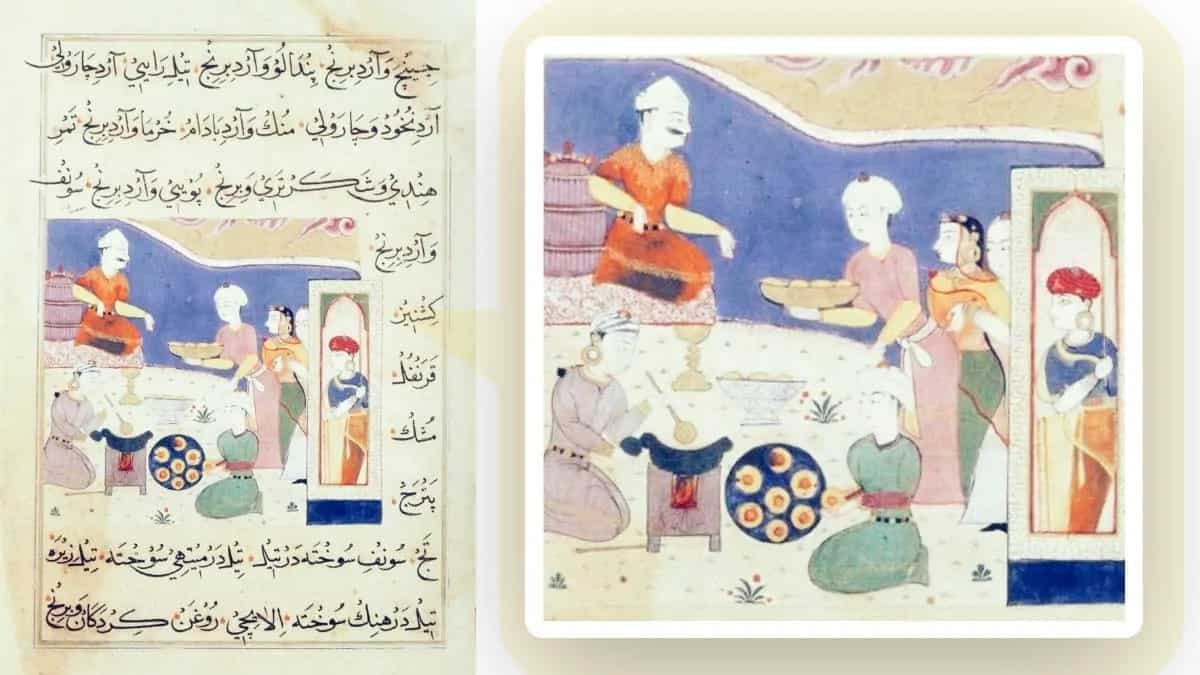 جینچ و آرد برنج پندالو و آرد برنج تیل رایی آرد چارولی
آرد نخود و چارولی منك و آرد بادام خرما و آرد برنج تمر
هندی و شکر تری و برنج پویی و آرد برنج سونف
و آرد برنج
کشنیز
قرنفل
مشك
پترج
تج سونف سوخته در تیل تیل در میتهی سوخته تیل زیره
تیل در هنك سوخته الایچی روغن کردگان و برنج